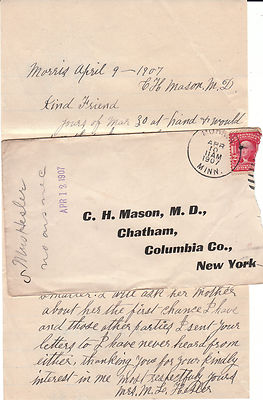 Morris April 9 - 1907
C H Mason, M. D
Kind Friend
yours of Mar 30 at hand & would
APR
10
11AM
1907
MINN.
APR 12 1907
no ans nec
C. H. Mason, M. D.,
Chatham,
Columbia Co.,
New York
matter. I will ask her Mother
about her the first chance I have
and those other parties I sent your
letters to I have never heard from
either, thanking you for your kindly
interest in me most respectfully yours
Mrs. M. L. Hesler